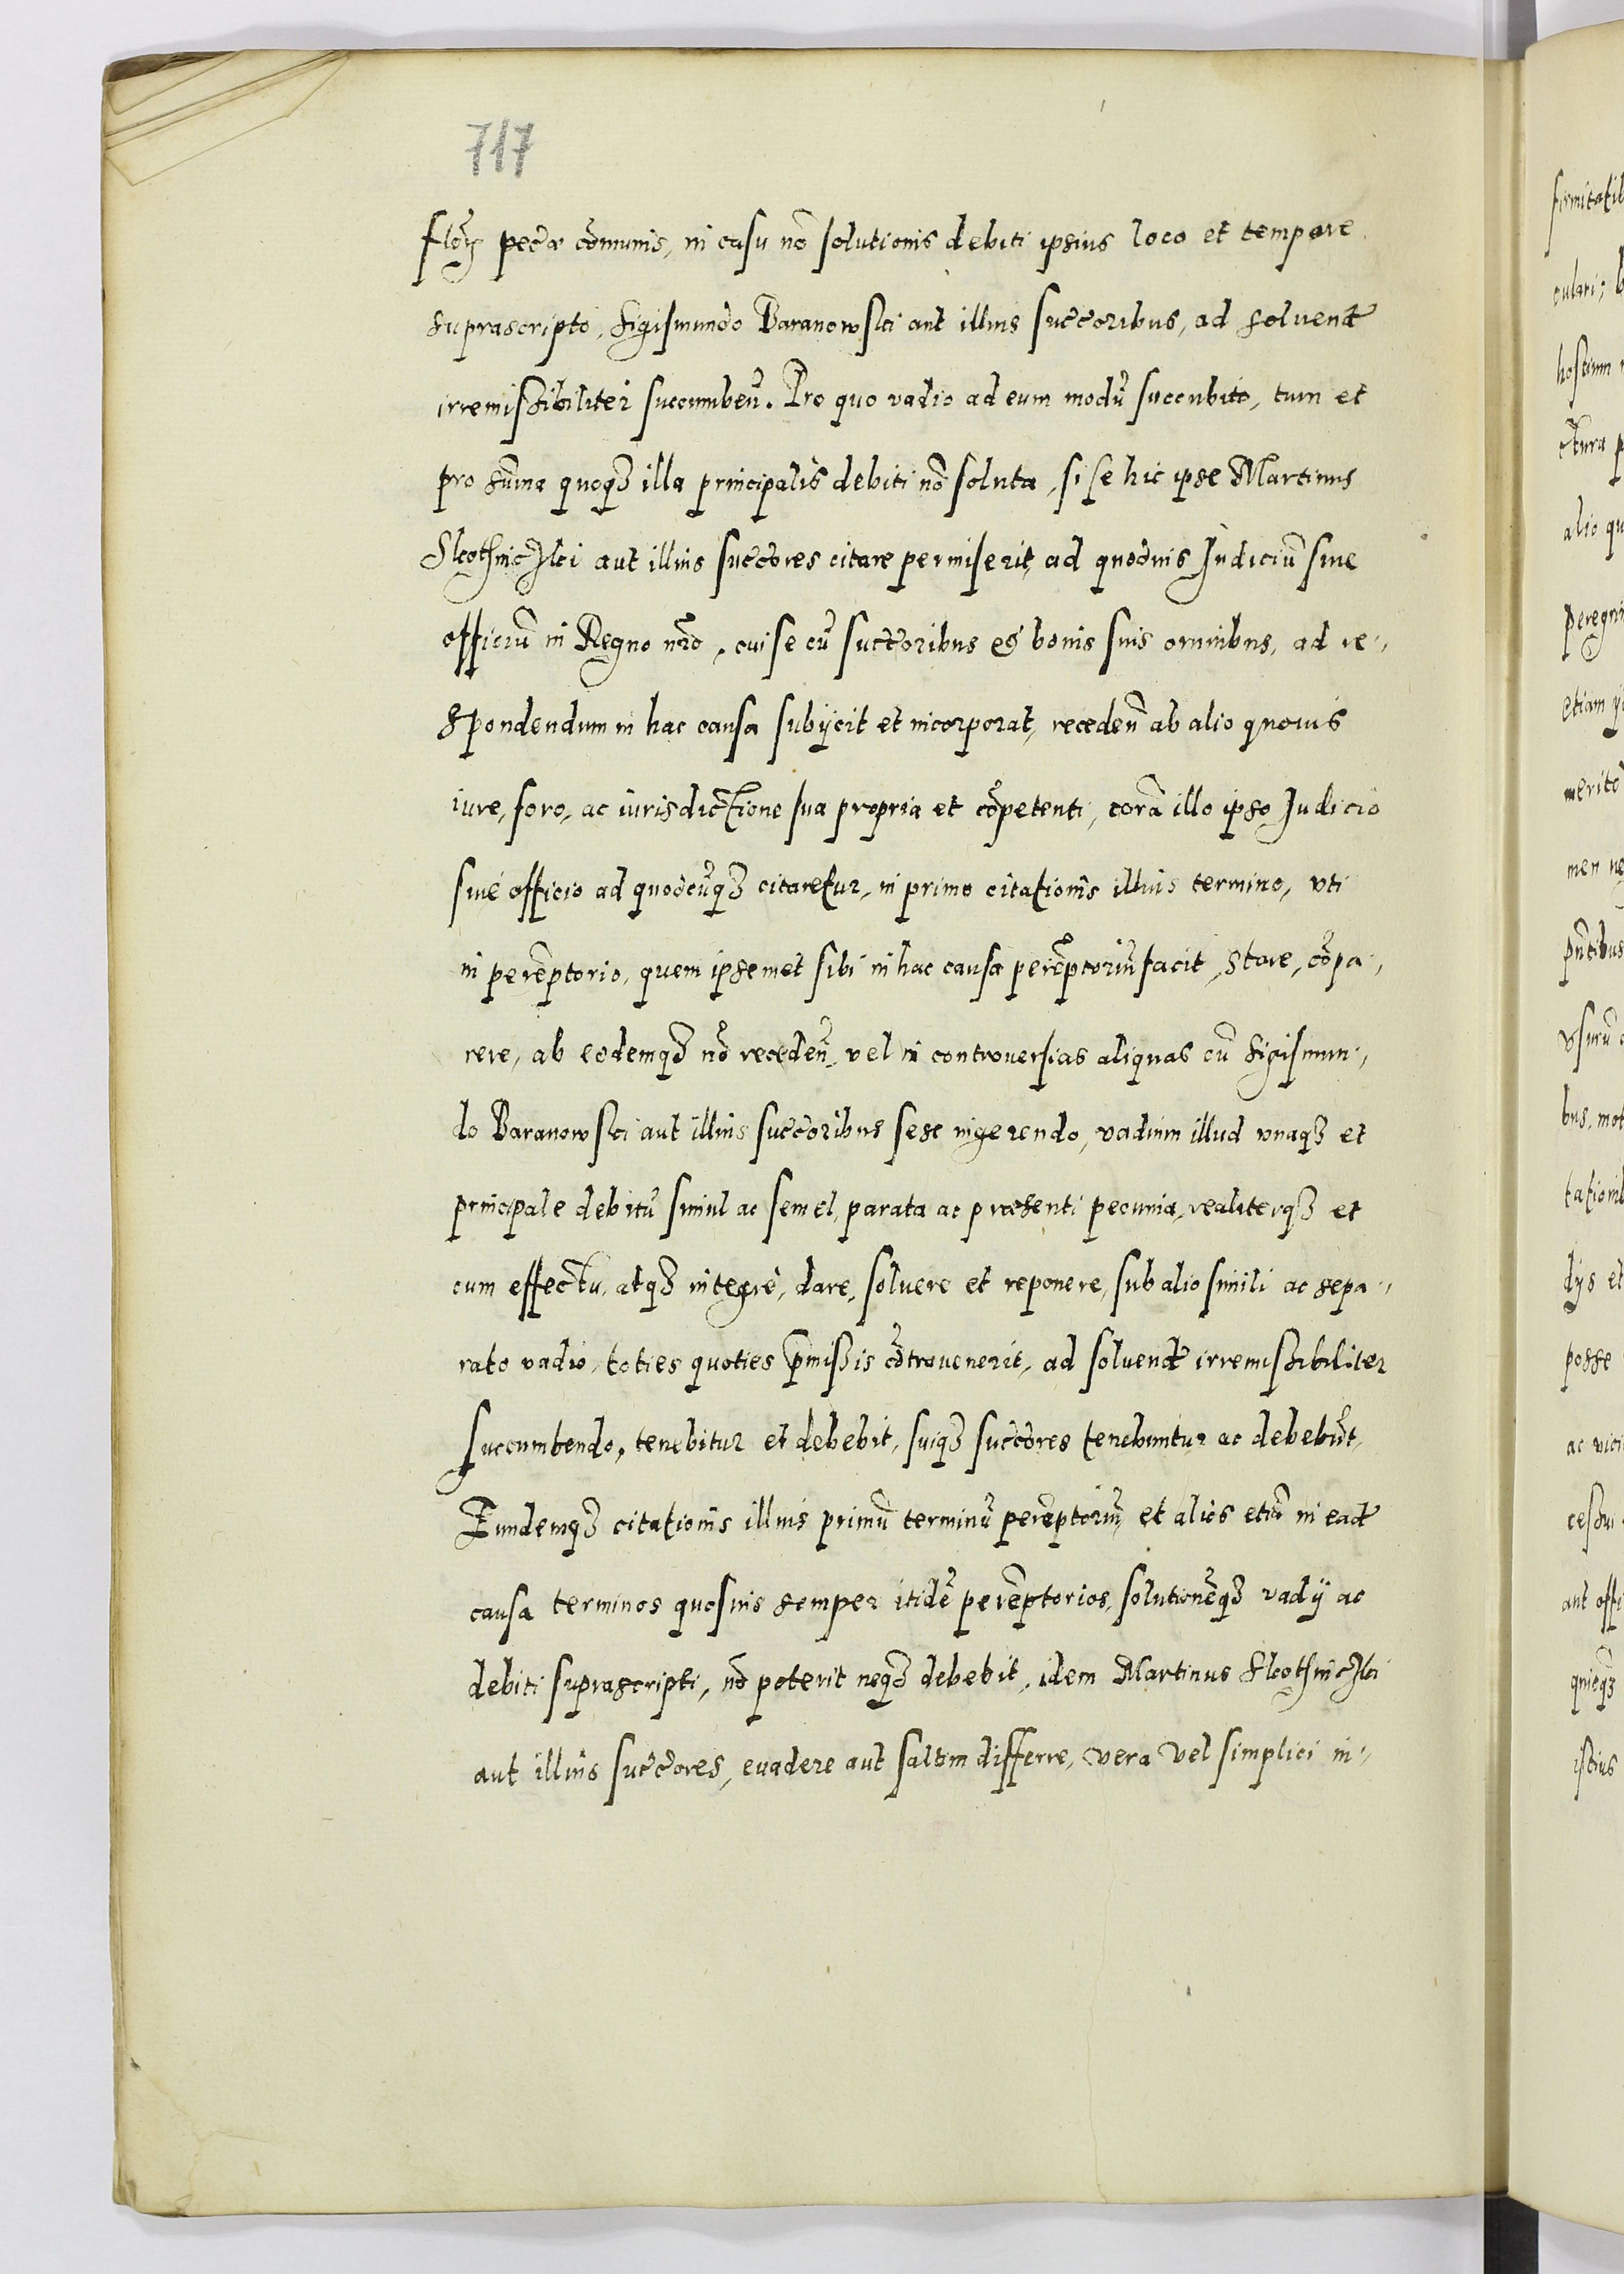 717
florẽ pecũæ cõmunis, in casu nõ solutionis debiti ipsius loco et tempore
suprascripto, Sigismundo Baranowski aut illius succ̃oribus, ad soluend̃
irremissibiliter succumbeñ. Pro quo vadio ad eum modũ succubito, tum et
pro sum̃a quoqȝ illa principalis debiti nõ soluta, si se hic ipse Martinus
aut illius succ̃ores citare permiserit, ad quoduis Judiciũ siue
officiũ in Regno nr̃o, cui se cũ succ̃oribus et bonis suis omnibus, ad re-,
spondendum in hac causa subijcit et incorporat, recedeñ ab alio quouis
iure, foro, ac iurisdictione sua propria et cõpetenti, corã illo ipso Judicio
siue officio ad quodcũqȝ citaretur, in primo citationis illius termino, vti
in perẽptorio, quem ipsemet sibi in hac causa perẽptoriũ facit, stare, cõpa-,
rere, ab eodemqȝ nõ recedeñ, vel in controuersias aliquas cũ Sigismun-,
do Baranowski aut illius succ̃oribus sese ingerendo, vadium illud vnaqȝ et
principale debitũ simul ac semel, parata ac præsenti pecunia, realiterqȝ et
cum effectu, atqȝ integrè, dare, soluere et reponere, sub alio simili ac sepa-,
rato vadio, toties quoties p̃missis cõtrauenerit, ad soluend̃ irremissibiliter
succumbendo, tenebitur et debebit, suiqȝ succ̃ores tenebuntur ac debebũt,
Eundemqȝ citationis illius primũ terminũ perẽptoriũ, et alios etiã in ead̃
causa terminos quosuis semper itidẽ perẽptorios, solutionẽqȝ vadij ac
debiti suprascripti, nõ poterit neqȝ debebit, idem Martinus
aut illius succ̃ores, euadere aut saltem differre, vera vel simplici in-,